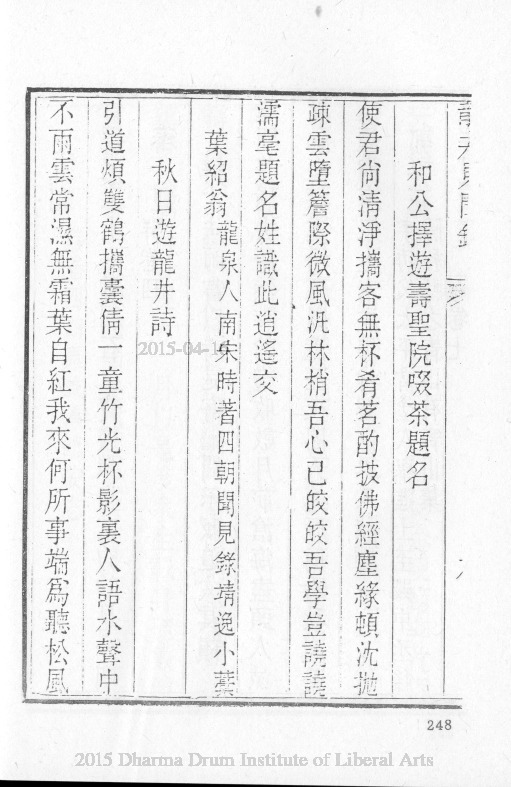 和公擇遊壽聖院啜茶題名
使君尙清淨攜客無杯肴茗酌披佛經塵緣頓沈抛
疎雲墮簷際微風汎林梢吾心已皎皎吾學豈譊譊
濡毫題名姓識此逍遙交
葉紹翁龍泉人南宋時著四朝聞見錄靖逸小藁
秋日遊龍井詩
引道煩雙鶴攜囊倩一童竹光杯影裏人語水聲中
不雨雲常濕無霜葉自紅我來何所事端爲聽松風
248
2015-04-1
2015 Dharma Drum Institute of Liberal Arts